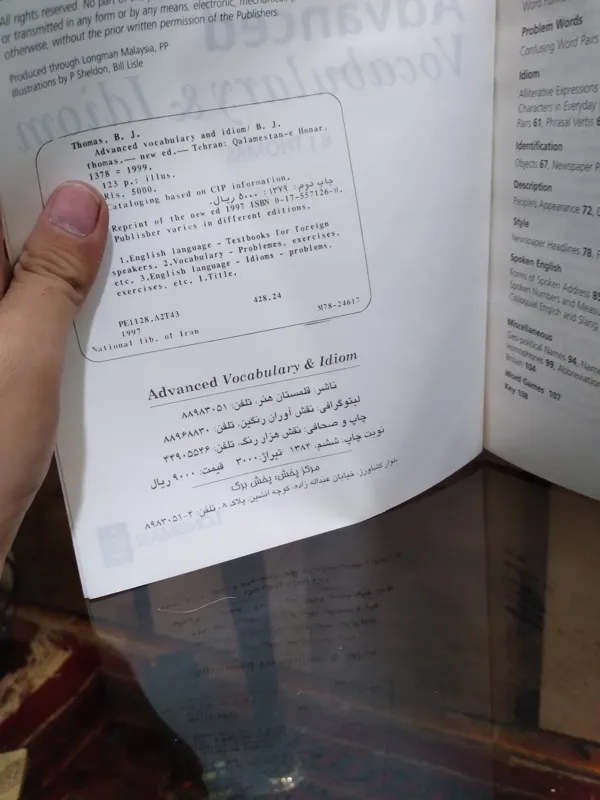 All rights reserved. No part of
or transmitted in any form or by any means, electronic, mechanical,
otherwise, without the prior written permission of the Publishers.
Produced through Longman Malaysia, PP
Illustrations by P Sheldon, Bill Lisle
Thomas, B. J.
Advanced vocabulary and idiom/ B. J.
thomas.— new ed.— Tehran: Qalamestan-e Honar,
1378 = 1999.
123 p.: illus.
Rls. 5000.
Cataloging based on CIP information.
چاپ دوم: ۱۳۷۹: ۵۰۰۰ ریال.
Reprint of the new ed 1997 ISBN 0-17-557126-0.
Publisher varies in different editions.
1.English language - Textbooks for foreign
speakers. 2.Vocabulary - Problemes, exercises,
etc. 3.English language - Idioms - problems,
exercises, etc. 1.Title.
428.24
PE1128.A2T43
1997
M78-24617
National lib. of Iran
Advanced Vocabulary & Idiom
ناشر: قلمستان هنر، تلفن: ۸۸۹۸۳۰۵۱
لیتوگرافی: نقش آوران رنگین، تلفن: ۸۸۹۶۸۸۳۰
چاپ و صحافی: نقش هزار رنگ، تلفن: ۴۴۹۰۵۵۴۶
نوبت چاپ: ششم، ۱۳۸۴ تیراژ: ۳۰۰۰ قیمت: ۹۰۰۰ ریال
مرکز پخش: پخش برگ
بلوار کشاورز، خیابان عبداله زاده، کوچه افشین، پلاک ۸، تلفن: ۴-۸۹۸۳۰۵۱
Problem Words
Confusing Word Pairs
Idiom
Alliterative Expressions
Characters in Everyday
Pairs 61, Phrasal Verbs
Identification
Objects 67, Newspaper
Description
People's Appearance 72,
Style
Newspaper Headlines 78,
Spoken English
Forms of Spoken Address
Spoken Numbers and
Colloquial English and Slang
Miscellaneous
Geo-political Names 94,
Homophones 99,
Britain 104
Word Games 107
Key 108